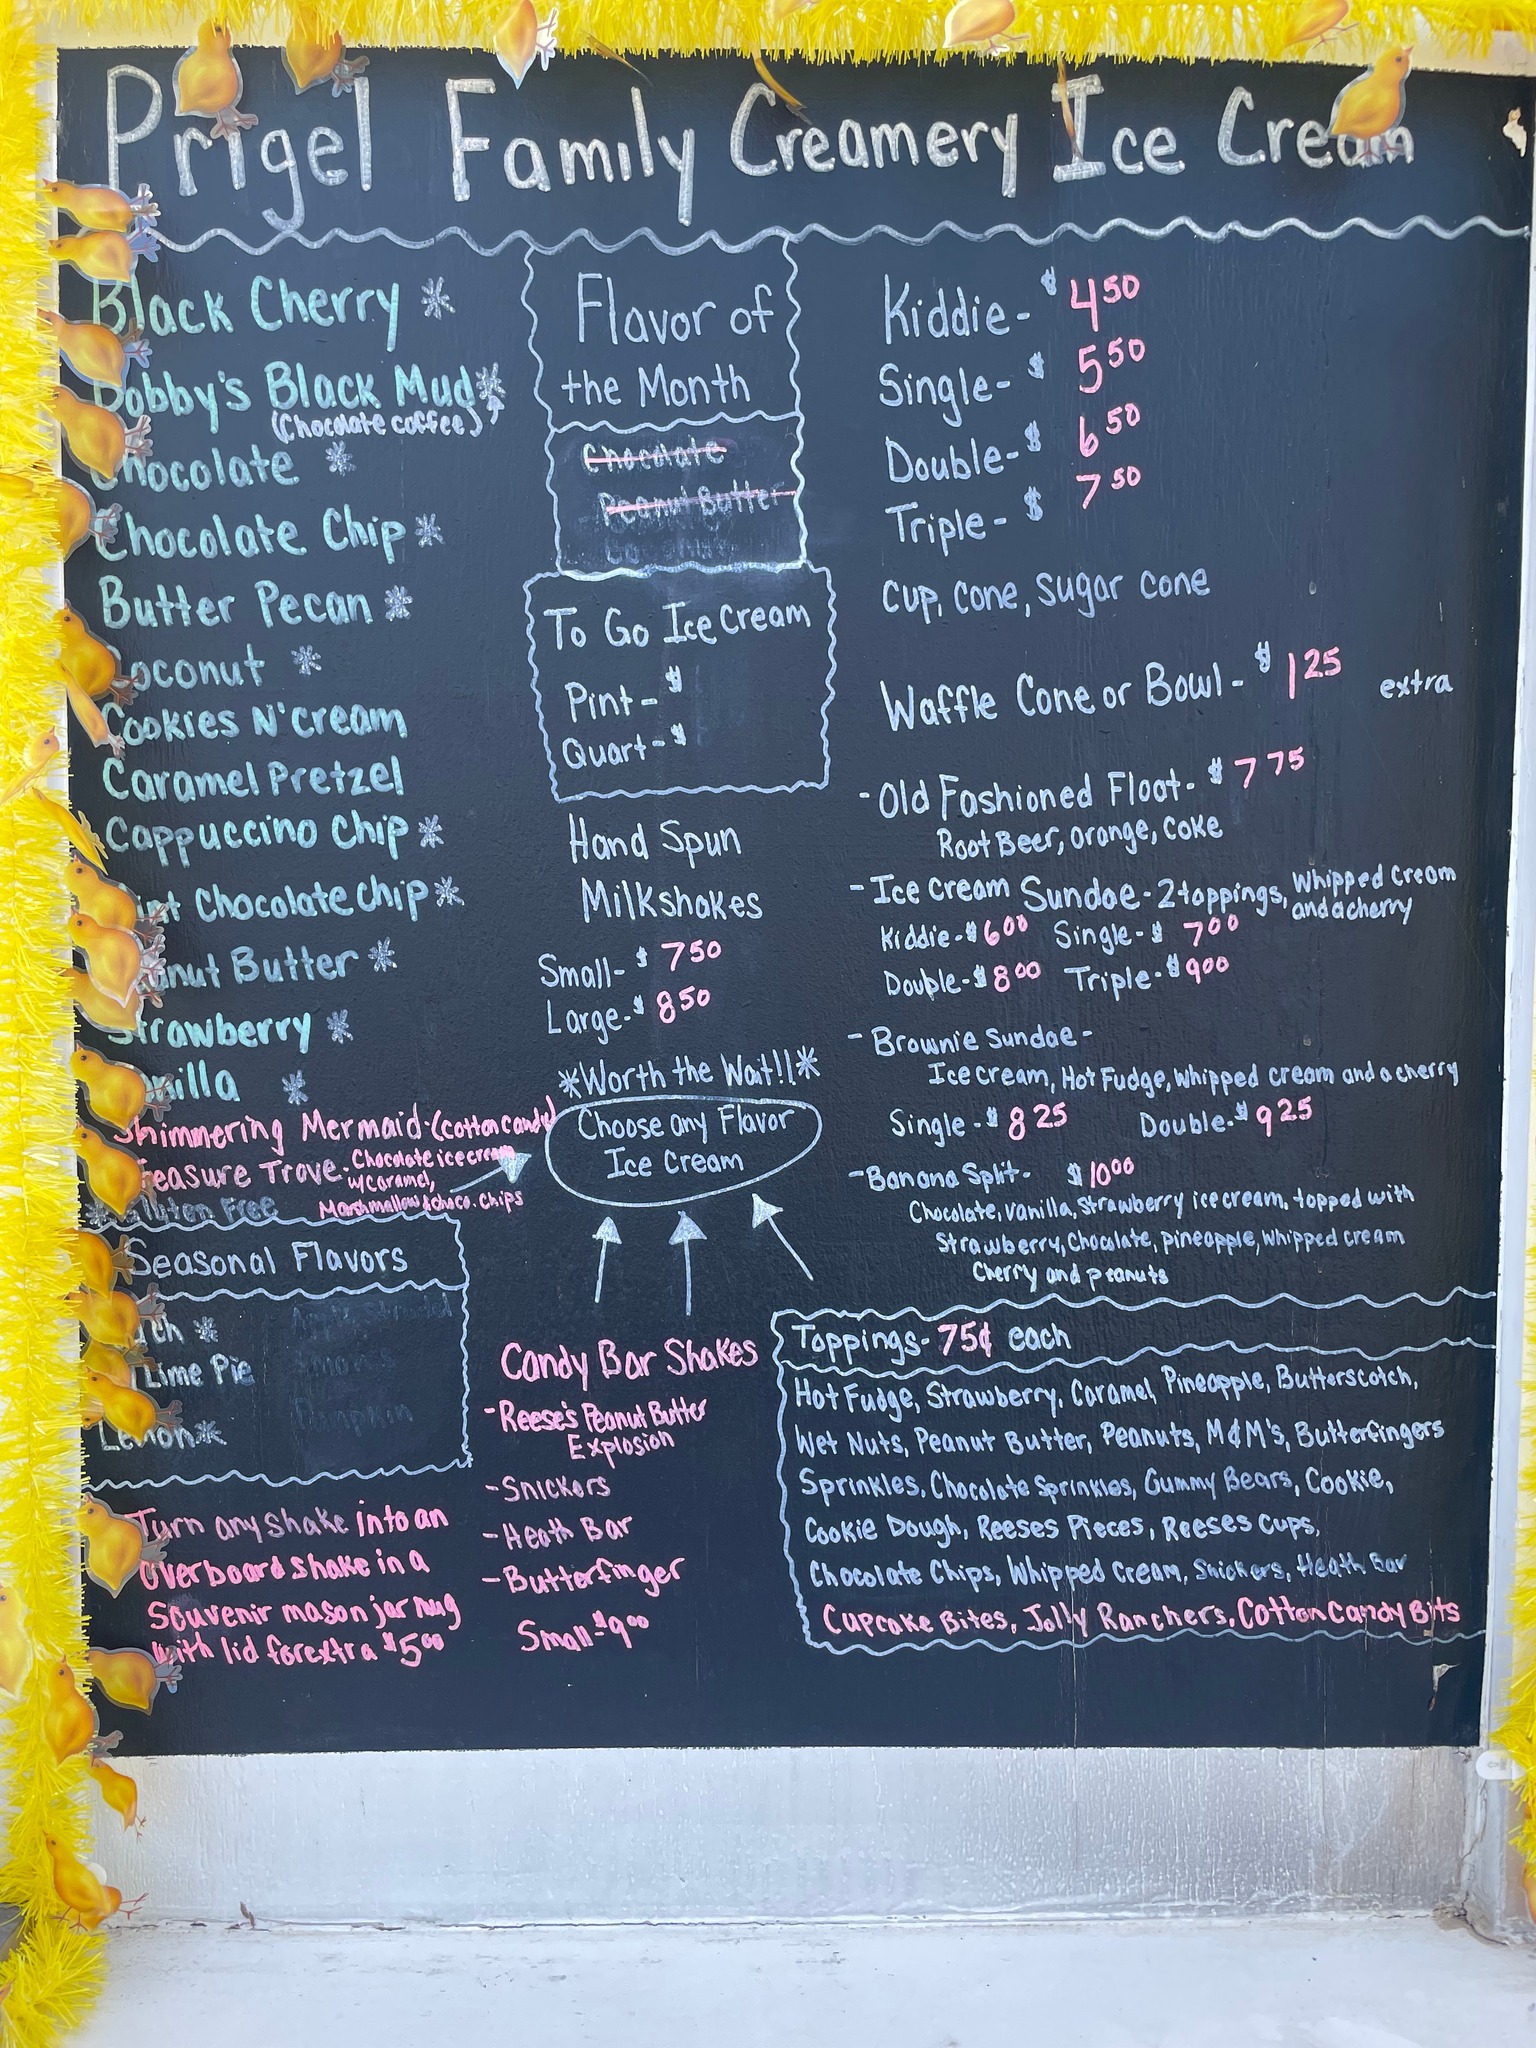 Prigel Family Creamery Ice Cream
Black Cherry *
Bobby's Black Mud *
(Chocolate coffee)
Chocolate *
Chocolate Chip *
Butter Pecan *
Coconut *
Cookies N' Cream
Caramel Pretzel
Cappuccino Chip *
Mint Chocolate Chip *
Peanut Butter *
Strawberry *
Vanilla *
Shimmering Mermaid - (cotton candy)
Treasure Trove - Chocolate ice cream
w/caramel,
Marshmallow & choco. chips
* Gluten Free
Seasonal Flavors
*
Lime Pie
Pumpkin
Lemon *
Turn any shake into an
overboard shake in a
souvenir mason jar mug
with lid for extra $5.00
Flavor of
the Month
Chocolate
Peanut Butter
To Go Ice Cream
Pint - $
Quart - $
Hand Spun
Milkshakes
Small - $7.50
Large - $8.50
*Worth the Wait!!*
Choose any Flavor
Ice Cream
Candy Bar Shakes
- Reese's Peanut Butter
Explosion
- Snickers
- Heath Bar
- Butterfinger
Small - $9.00
Kiddie - $4.50
Single - $5.50
Double - $6.50
Triple - $7.50
Cup, cone, sugar cone
Waffle Cone or Bowl - $1.25 extra
- Old Fashioned Float - $7.75
Root Beer, orange, coke
- Ice Cream Sundae - 2 toppings, Whipped Cream
and a cherry
Kiddie - $6.00 Single - $7.00
Double - $8.00 Triple - $9.00
- Brownie Sundae -
Ice cream, Hot Fudge, Whipped cream and a cherry
Single - $8.25 Double - $9.25
- Banana Split - $10.00
Chocolate, vanilla, strawberry ice cream, topped with
strawberry, chocolate, pineapple, whipped cream
Cherry and peanuts
Toppings - 75¢ each
Hot Fudge, Strawberry, Caramel, Pineapple, Butterscotch,
Wet Nuts, Peanut Butter, Peanuts, M&M's, Butterfingers
Sprinkles, Chocolate Sprinkles, Gummy Bears, Cookie,
Cookie Dough, Reeses Pieces, Reeses Cups,
Chocolate Chips, Whipped Cream, Snickers, Heath Bar
Cupcake Bites, Jolly Ranchers, Cotton Candy Bits